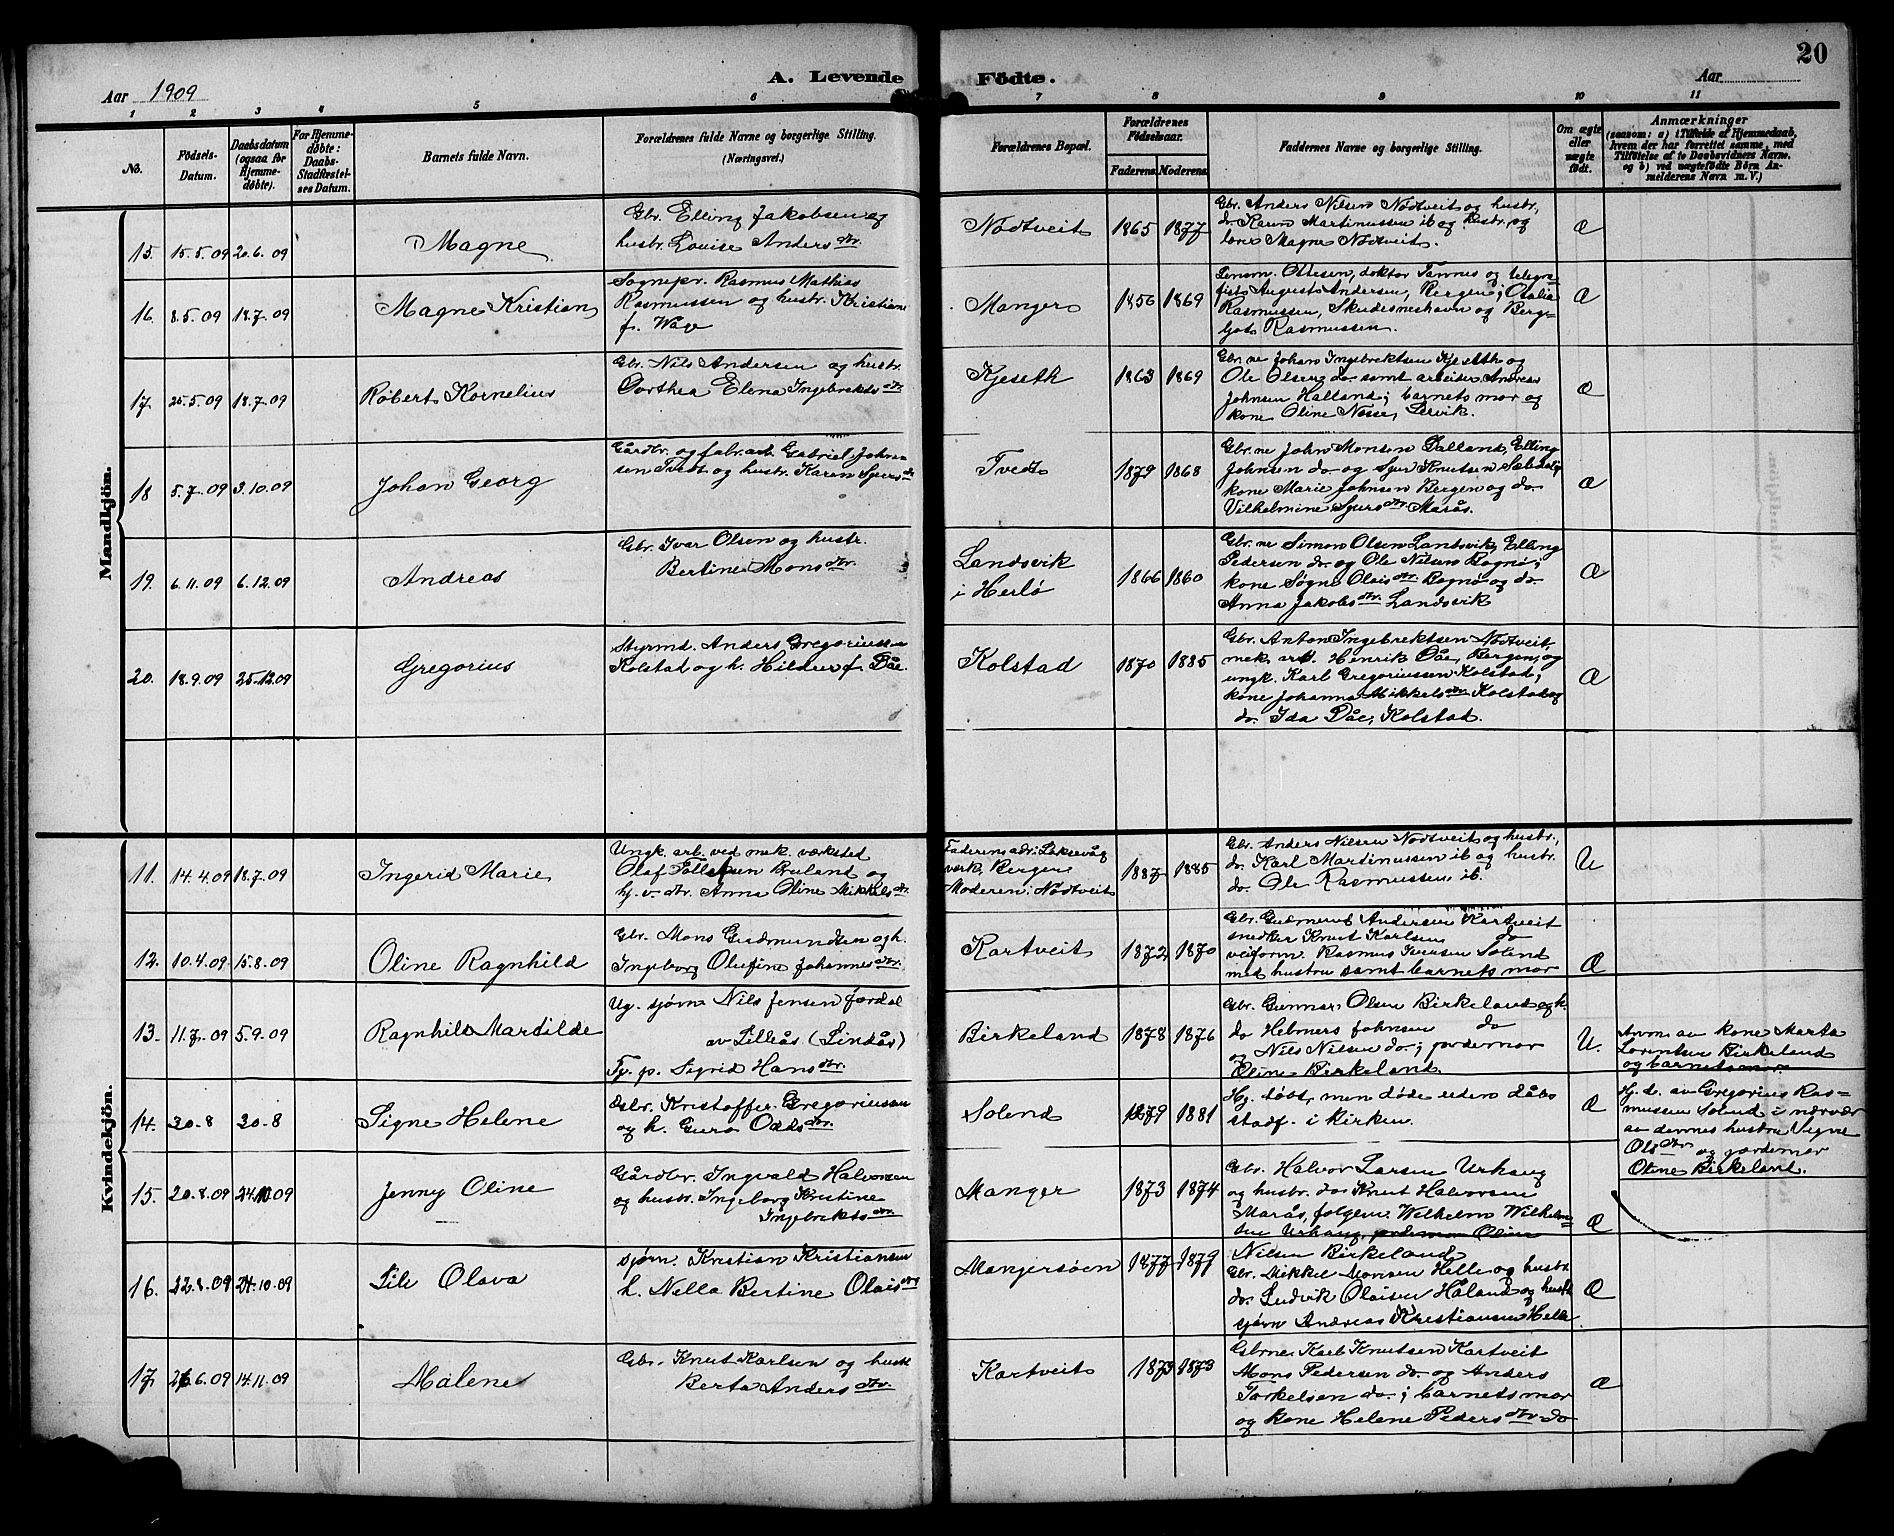 20
A. Levende Födte.
Aar 1909
Aar
1 2 3 4 5 6 7 8 9 10 11
No.
Födsels-Datum.
Daabsdatum (ogsaa for Hjemmedöbte).
For Hjemmedøbte: Daabs-Stadfæstelses Datum.
Barnets fulde Navn.
Forældrenes fulde Navne og borgerlige Stilling. (Næringsvei.)
Forældrenes Bopæl.
Forældrenes Födselsaar.
Faderens Moderens
Faddernes Navne og borgerlige Stilling.
Om ægte eller uægte födt.
Anmærkninger
(saasom: a) i Tilfælde af Hjemmedaab, hvem der har forrettet samme, med Tilföielse af to Daabsvidners Navne. og b) ved uægtefödte Börn Anmelderens Navn m. V.)
Mandkjön.
15. 15.5.09 20.6.09 Magne
Gbr. Elling Jakobsen og
hustr. Louise Andersdtr.
Nodtveit 1865 1877
Gbr. Anders Nilsen Nodtveit og hustr.,
do. Karen Martinussen ib og hustr. og
Magne Nodtveit.
Æ
16. 8.5.09 18.7.09 Magne Kristian
Sognepr. Rasmus Mathias
Rasmussen og hustr. Kristiane
f. Wage
Manger 1856 1869
Lensm. Ottesen, doktor Tannes og telegra-
fist Augusta Andersen, Bergen; Otalia
Rasmussen, Skudesneshavn og Berg-
ljot Rasmussen.
Æ
17. 25.5.09 18.7.09 Robert Kornelius
Gbr. Nils Andersen og hustr.
Dorthea Elena Ingebrektsdtr
Kjeseth 1863 1869
Gbr.ne Johan Ingebrektsen Kjeseth og
Ole Olsen do. samt arbeider Andreas
Johnsen Halland; barnets mor og
kone Oline Nesse, Lervik.
Æ
18 5.7.09 3.10.09 Johan Georg
Gårdbr. og fabr.arb. Gabriel Johan-
sen Tvedt og hustr. Karen Sjursdtr
Tvedt 1879 1868
Gbr.ne John Monsen Dalland, Elling
Johnsen do. og Sjur Knutsen
kone Marie Johnsen Bergen og do.
Vilhelmine Sjursdtr Marås.
Æ
19. 6.11.09 6.12.09 Andreas
Gbr. Ivar Olsen og hustr.
Bertine Monsdtr.
Landsvik
i Herlø 1866 1860
Gbr.ne Simon Olsen Landsvik, Elling
Pedersen do. og Ole Nilsen Bognø;
kone Søgne Olaisdtr. Bognø og do.
Anna Jakobsdtr. Landsvik
Æ
20. 18.9.09 25.12.09 Gregorius
Styrmd. Anders Gregoriussen
Kolstad og h. Hildur f. Dåe.
Kolstad 1870 1885
Gbr. Anton Ingebrektsen Nodtveit,
mek. arb. Henrik Dåe, Bergen, og
ungk. Karl Gregoriussen Kolstad;
kone Johanna Mikkelsdtr. Kolstad og
do. Ida Dåe, Kolstad.
Æ
Kvindekjön.
11. 14.4.09 18.7.09 Ingerid Marie
Ungk. arb. ved mek. værksted
Olaf Bruland og
Anna Oline Mikkelsdtr.
Faderens adr: Laksevåg
verk, Bergen
Moderen: Nodtveit 1887 1885
Gbr. Anders Nilsen Nodtveit og hustr.,
do. Karl Martinussen ib og hustr.
do. Ole Rasmussen ib.
U
12. 10.4.09 15.8.09 Oline Ragnhild
Gbr. Mons Gudmundsen og h.
Ingeborg Olufine Johannesdtr.
Kartveit 1872 1870
Gbr. Gudmund Andersen Kartveit
snedker Knut Karlsen do
veiform. Rasmus Iversen Solend
med hustru samt barnets mor
Æ
13. 11.7.09 5.9.09 Ragnhild Martilde
Ug. sjørm Nils Jensen Jordal
av Lilleås (Lindås)
Tj. p. Sigrid Hansdtr.
Birkeland 1878 1876
Gbr. Gunnar Olsen Birkeland og h.
do Helmers Johnsen do
og Nils Nilsen do.; jordemor
Oline Birkeland.
U.
Anm. av kone Marta
Lorentsen Birkeland
og barnets mor.
14. 30.8 30.8 Signe Helene
Gbr. Kristoffer Gregoriussen
og h. Guro Oddsdtr.
Solend 1879 1881
Hj. døbt, men døde uden dåbs
stadf. i kirken.
Æ
Hj. d. av Gregorius Ras-
mussen Solend i nærvær
av dennes hustru Signe
Olsdtr og jordemor
Oline Birkeland.
15. 20.8.09 24.10.09 Jenny Oline
Gårdbr. Ingvald Halvorsen
og hustr. Ingeborg Kristine
Ingebrektsdtr.
Manger 1873 1874
Gbr. Halvor Larsen Urhaug
og hustr. do Knut Halvorsen
Marås, følgem. Wilhelm Wilhelm-
sen Urhaug, jordemor Oline
Nilsen Birkeland
Æ
16. 22.8.09 24.10.09 Lile Olava
sjørn. Kristian Kristiansen
h. Nella Bertine Olaisdtr
Mangersøen 1877 1879
Gbr. Mikkel Monsen Helle og hustr
do. Ludvik Olaisen Håland og hustr
sjørn Andreas Kristiansen Helle.
Æ
17. 26.6.09 14.11.09 Malene
Gbr. Knut Karlsen og hustr
Berta Andersdtr.
Kartveit 1873 1873
Gbrne. Karl Knutsen Kartveit
Mons Pedersen do. og Anders
Torkelsen do.; barnets mor
og kone Helene Pedersdtr. do
Æ